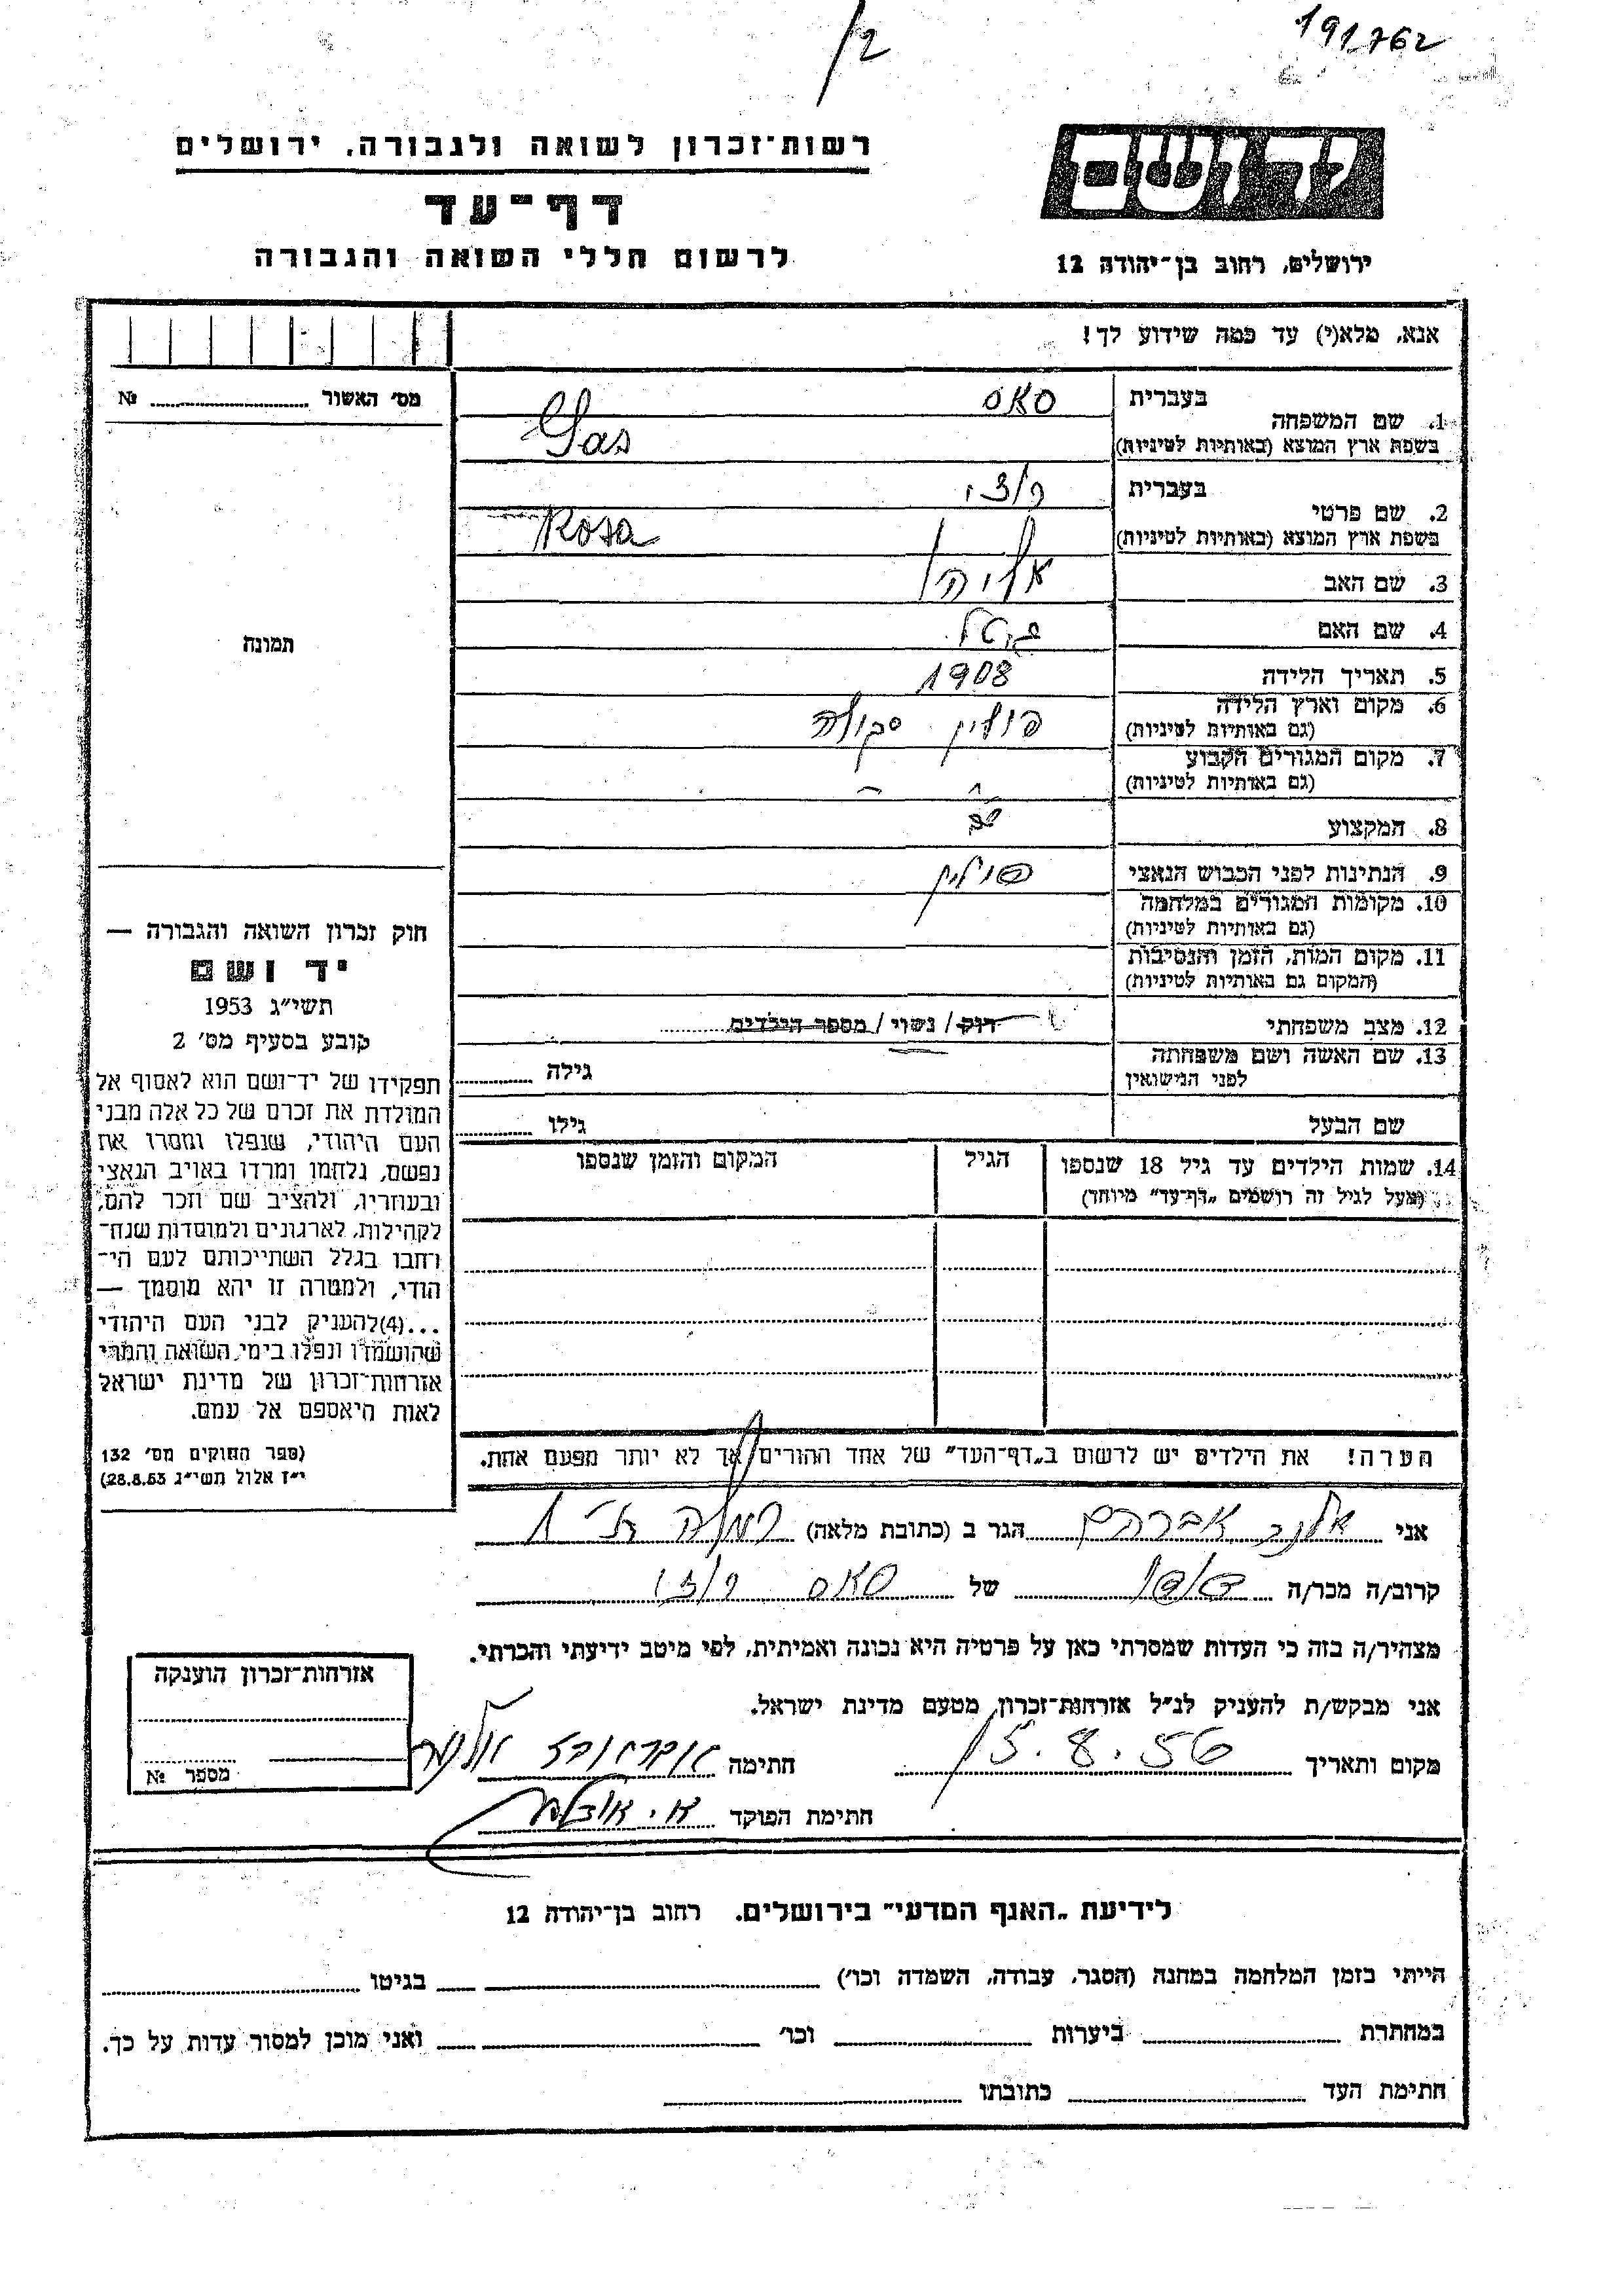 191762
/2
יד ושם
ירושלים, רחוב בן־יהודה 12
רשות־זכרון לשואה ולגבורה, ירושלים
דף־עד
לרשום חללי השואה והגבורה
אנא, מלא(י) עד כמה שידוע לך!
1. שם המשפחה
בעברית סאס
בשפת ארץ המוצא (באותיות לטיניות) Sas
2. שם פרטי
בעברית רוזי
בשפת ארץ המוצא (באותיות לטיניות) Rosa
3. שם האב אליהו
4. שם האם
5. תאריך הלידה 1908
6. מקום וארץ הלידה פולין
(גם באותיות לטיניות)
7. מקום המגורים הקבוע
(גם באותיות לטיניות)
8. המקצוע
9. הנתינות לפני הכבוש הנאצי פולין
10. מקומות המגורים במלחמה
(גם באותיות לטיניות)
11. מקום המות, הזמן והנסיבות
(המקום גם באותיות לטיניות)
12. מצב משפחתי רוק / נשוי / מספר הילדים
13. שם האשה ושם משפחתה
לפני הנישואין גילה
שם הבעל גילו
14. שמות הילדים עד גיל 18 שנספו הגיל המקום והזמן שנספו
(מעל לגיל זה רושמים „דף־עד” מיוחד)
הערה! את הילדים יש לרשום ב„דף־העד” של אחד ההורים, אך לא יותר מפעם אחת.
מס' האשור №
תמונה
חוק זכרון השואה והגבורה —
יד ושם
תשי״ג 1953
קובע בסעיף מס' 2
תפקידו של יד־ושם הוא לאסוף אל
המולדת את זכרם של כל אלה מבני
העם היהודי, שנפלו ומסרו את
נפשם, נלחמו ומרדו באויב הנאצי
ובעוזריו, ולהציב שם וזכר להם,
לקהילות, לארגונים ולמוסדות שנח־
רחבו בגלל השתייכותם לעם הי־
הודי, ולמטרה זו יהא מוסמך —
...(4)להעניק לבני העם היהודי
שהושמדו ונפלו בימי השואה והמרי
אזרחות־זכרון של מדינת ישראל
לאות היאספם אל עמם.
(ספר החוקים מס' 132
י״ז אלול תשי״ג 28.8.53)
אני אברהם הגר ב (כתובת מלאה) רמלה
קרוב/ה מכר/ה של סאס רוזי
מצהיר/ה בזה כי העדות שמסרתי כאן על פרטיה היא נכונה ואמיתית, לפי מיטב ידיעתי והכרתי.
אני מבקש/ת להעניק לנ״ל אזרחות־זכרון מטעם מדינת ישראל.
מקום ותאריך 15.8.56 חתימה
חתימת הפוקד
אזרחות־זכרון הוענקה
מספר №
לידיעת „האגף המדעי” בירושלים. רחוב בן־יהודה 12
הייתי בזמן המלחמה במחנה (הסגר, עבודה, השמדה וכו') בגיטו
במחתרת ביערות וכו' ואני מוכן למסור עדות על כך.
חתימת העד כתובתו